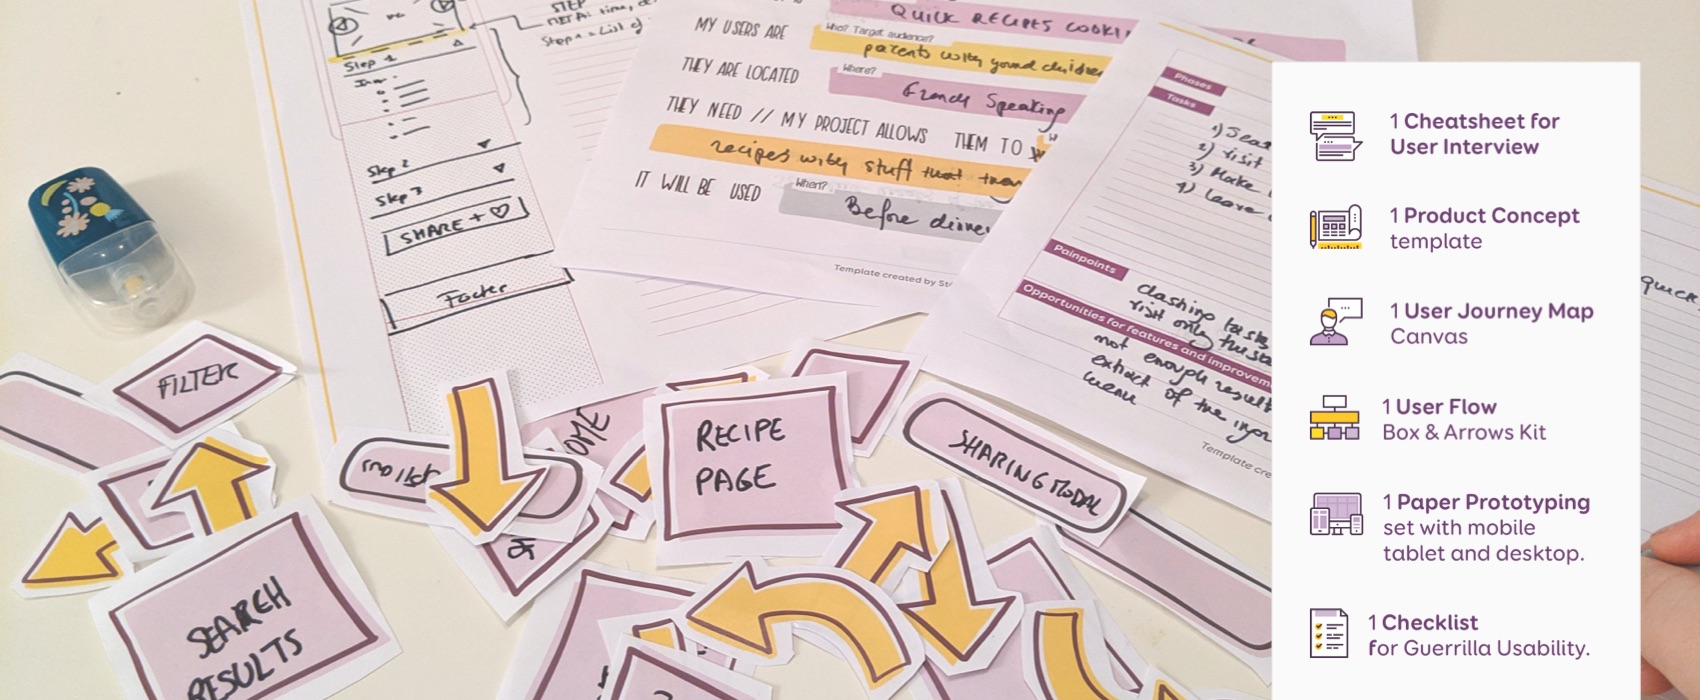 STEP
Step 1
Step 2
Step 3
SHARE +
Footer
QUICK RECIPES
MY USERS ARE
Who? Target audience?
parents with
THEY ARE LOCATED
Where?
French Speaking
THEY NEED // MY PROJECT ALLOWS THEM TO
recipes with stuff that
IT WILL BE USED
When?
Before
Template created by
Phases
Tasks
1)
2) visit
3) Make
4) Leave
Painpoints
Opportunities for features and
not enough
extract of the
menu
Template
quick
FILTER
RECIPE
PAGE
SHARING MODAL
SEARCH
RESULTS
1 Cheatsheet for
User Interview
1 Product Concept
template
1 User Journey Map
Canvas
1 User Flow
Box & Arrows Kit
1 Paper Prototyping
set with mobile
tablet and desktop.
1 Checklist
for Guerrilla Usability.